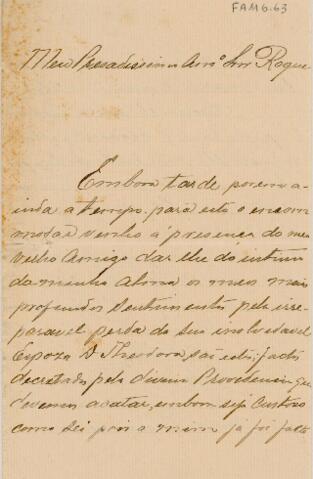 FAMG.63
Meu Presadissimo Amº Snr Roque
Embora tarde porem a-
inda a tempo para este o encom
modar venho á presença do meu
velho Amigo dar lhe do intimo
da minha alma os meus mais
profundos sentimentos pela irre-
paravel perda da sua inolvidavel
Espoza D Theodora, são estes factos
decretados pela divina Providencia que
devemos acatar, embora seja custoso
como sei pois a mim já foi feito